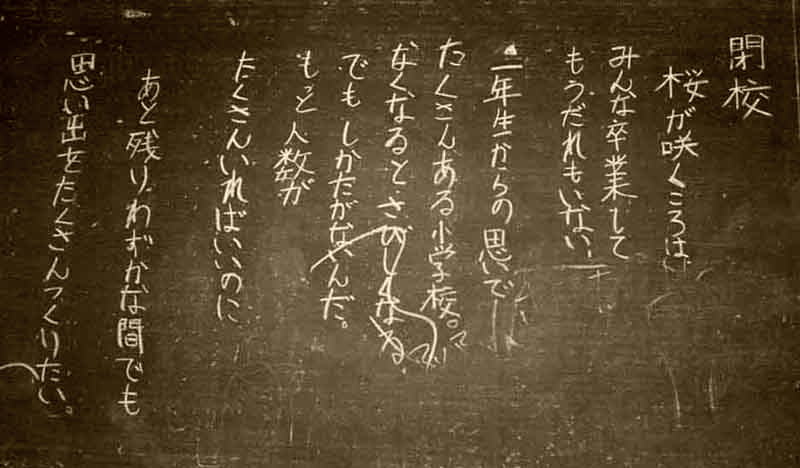 閉校
桜が咲くころは
みんな卒業して
もうだれもいない
一年生からの思いで
たくさんある小学校。
なくなるとさびしくなる。
でもしかたがないんだ。
もっと人数が
たくさんいればいいのに
あと残りわずかな間でも
思い出をたくさんつくりたい。